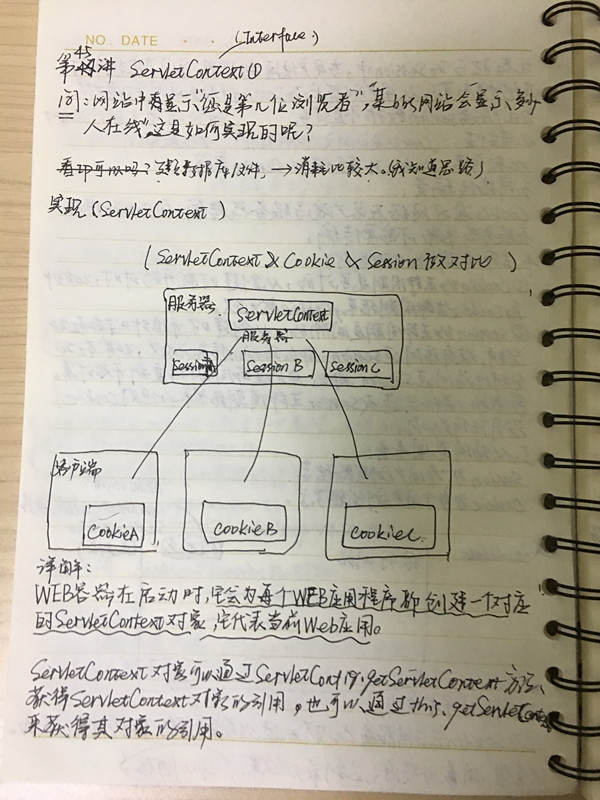 NO. DATE
(Interface)
第45讲 ServletContext①
问:网站中有显示"您是第几位浏览者",某的网站会显示多少
人在线"这是如何实现的呢?
建数据库/文件,→消耗比较大。
实现(ServletContext)
(ServletContext & Cookie & Session 做对比)
服务器 ServletContext
服务器
Session Session B Session C
客户端
CookieA CookieB CookieC
详解:
WEB容器在启动时,它会为每个WEB应用程序都创建一个对应
的ServletContext对象,它代表当前Web应用。
ServletContext对象可以通过ServletConfig.getServletContext方法
获得ServletContext对象的引用,也可以通过this.getServletContext
来获得其对象的引用。